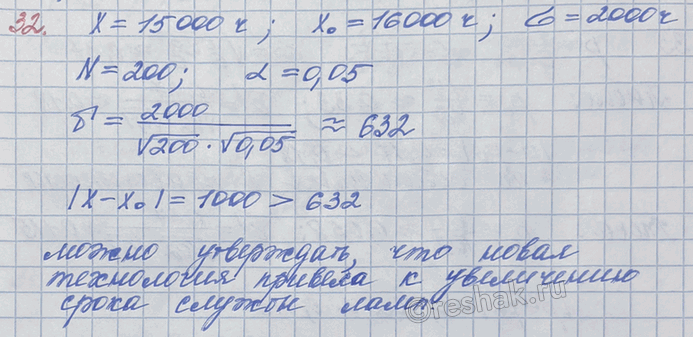 32. X = 15000 ч; X₀ = 16000 ч; σ = 2000 ч
N = 200; α = 0,05
δ = 2000 / (√200 · √0,05) ≈ 632
|X - X₀| = 1000 > 632
можно утверждать, что новая
технология привела к увеличению
срока службы ламп.
©reshak.ru